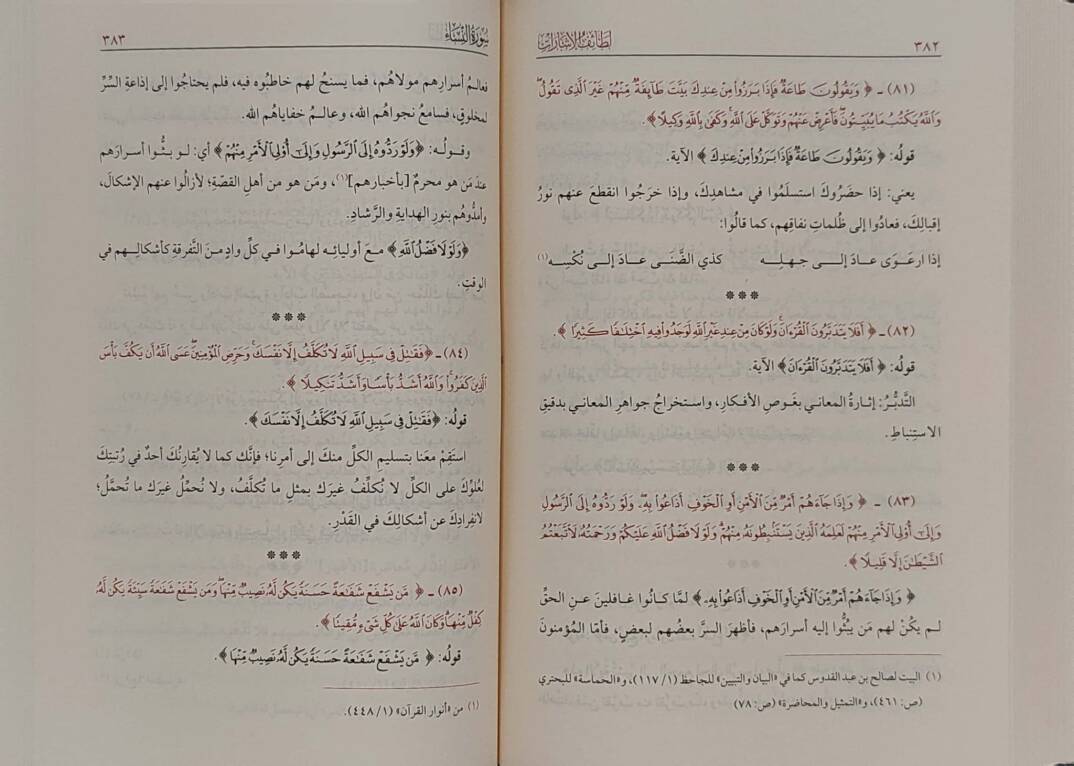 ٣٨٢
لطائف الإشارات
(٨١) ـ ﴿ وَيَقُولُونَ طَاعَةٌ فَإِذَا بَرَزُوا مِنْ عِندِكَ بَيَّتَ طَآئِفَةٌ مِّنْهُمْ غَيْرَ الَّذِى تَقُولُ
وَاللَّهُ يَكْتُبُ مَا يُبَيِّتُونَ فَأَعْرِضْ عَنْهُمْ وَتَوَكَّلْ عَلَى اللَّهِ وَكَفَى بِاللَّهِ وَكِيلًا﴾.
قولُه: ﴿ وَيَقُولُونَ طَاعَةٌ فَإِذَا بَرَزُوا مِنْ عِندِكَ ﴾ الآية.
يعني: إذا حضَرُوكَ استسلَمُوا في مشاهدِكَ، وإذا خرَجُوا انقطعَ عنهم نورُ
إقبالِكَ، فعادُوا إلى ظُلماتِ نفاقِهم، كما قالُوا:
إذا ارعَوَى عـادَ إلــى جـهـلِـهِ كذي الضَّنَى عـادَ إلى نُكْسِـه (١)
***
(٨٢) ـ ﴿ أَفَلَا يَتَدَبَّرُونَ الْقُرْءَانَ وَلَوْ كَانَ مِنْ عِندِ غَيْرِ اللَّهِ لَوَجَدُوا فِيهِ اخْتِلَافًا كَثِيرًا ﴾.
قولُه: ﴿ أَفَلَا يَتَدَبَّرُونَ الْقُرْءَانَ﴾ الآية.
التَّدبُّرُ: إثارةُ المعاني بغَوصِ الأفكارِ، واستخراجُ جواهرِ المعاني بدقيقِ
الاستِنباطِ.
***
(٨٣) ـ ﴿ وَإِذَا جَاءَهُمْ أَمْرٌ مِّنَ الْأَمْنِ أَوِ الْخَوْفِ أَذَاعُوا بِهِ وَلَوْ رَدُّوهُ إِلَى الرَّسُولِ
وَإِلَى أُوْلِى الْأَمْرِ مِنْهُمْ لَعَلِمَهُ الَّذِينَ يَسْتَنۢبِطُونَهُ مِنْهُمْ وَلَوْلَا فَضْلُ اللَّهِ عَلَيْكُمْ وَرَحْمَتُهُ لَاتَّبَعْتُمُ
الشَّيْطَانَ إِلَّا قَلِيلًا ﴾.
﴿ وَإِذَا جَاءَهُمْ أَمْرٌ مِّنَ الْأَمْنِ أَوِ الْخَوْفِ أَذَاعُوا بِهِ ﴾ لمَّا كانُوا غافلينَ عـنِ الحقِّ
لـم يكُنْ لهم مَن يَبُثُّوا إليه أسرارَهم، فأظهرَ السرَّ بعضُهم لبعضٍ، فأمَّا المؤمنونَ
(١) البيت لصالح بن عبد القدوس كما في «البيان والتبيين» للجاحظ (١/ ١١٧)، و«الحماسة» للبحتري
(ص: ٤٦١)، و«التمثيل والمحاضرة» (ص: ٧٨)
سورة النساء
٣٨٣
فعالمُ أسرارِهم مولاهُم، فما يسنحُ لهم خاطبُوه فيه، فلم يحتاجُوا إلى إذاعةِ السِّرِّ
لمخلوقٍ، فسامعُ نجواهُم الله، وعالمُ خفاياهُم الله.
وقـولُـه: ﴿وَلَوْ رَدُّوهُ إِلَى الرَّسُولِ وَإِلَى أُوْلِى الْأَمْرِ مِنْهُمْ ﴾ أي: لـو بثُّـوا أسرارَهم
عندَ مَن هو محرمٌ [بأخبارهم](١)، ومَن هو من أهلِ القصّةِ؛ لأزالُوا عنهم الإشكالَ،
وأمدُّوهُم بنورِ الهدايةِ والرَّشادِ.
﴿وَلَوْلَا فَضْلُ اللَّهِ ﴾ مـع أوليائِـه لهامُـوا فـي كلِّ وادٍ مـنَ التَّفرقةِ كأشكالِـهم في
الوقتِ.
***
(٨٤) ـ ﴿فَقَاتِلْ فِى سَبِيلِ اللَّهِ لَا تُكَلَّفُ إِلَّا نَفْسَكَ وَحَرِّضِ الْمُؤْمِنِينَ عَسَى اللَّهُ أَن يَكُفَّ بَأْسَ
الَّذِينَ كَفَرُوا وَاللَّهُ أَشَدُّ بَأْسًا وَأَشَدُّ تَنكِيلًا ﴾.
قولُه: ﴿فَقَاتِلْ فِى سَبِيلِ اللَّهِ لَا تُكَلَّفُ إِلَّا نَفْسَكَ ﴾.
استَقِمْ معَنا بتسليمِ الكلِّ منكَ إلى أمرِنا؛ فإنَّك كما لا يُقارِنُكَ أحدٌ في رُتبتِكَ
لعُلوِّكَ على الكلِّ لا نُكلِّفُ غيرَك بمثلِ ما تُكلَّفُ، ولا نُحمِّلُ غيرَك ما تُحمَّلُ؛
لانفِرادِكَ عن أشكالِكَ في القَدْرِ.
***
(٨٥) ـ ﴿ مَّن يَشْفَعْ شَفَاعَةً حَسَنَةً يَكُن لَّهُ نَصِيبٌ مِّنْهَا وَمَن يَشْفَعْ شَفَاعَةً سَيِّئَةً يَكُن لَّهُ
كِفْلٌ مِّنْهَا وَكَانَ اللَّهُ عَلَى كُلِّ شَىْءٍ مُّقِيتًا ﴾.
قولُه: ﴿ مَّن يَشْفَعْ شَفَاعَةً حَسَنَةً يَكُن لَّهُ نَصِيبٌ مِّنْهَا﴾.
(١) من «أنوار القرآن» (١/ ٤٤٨).